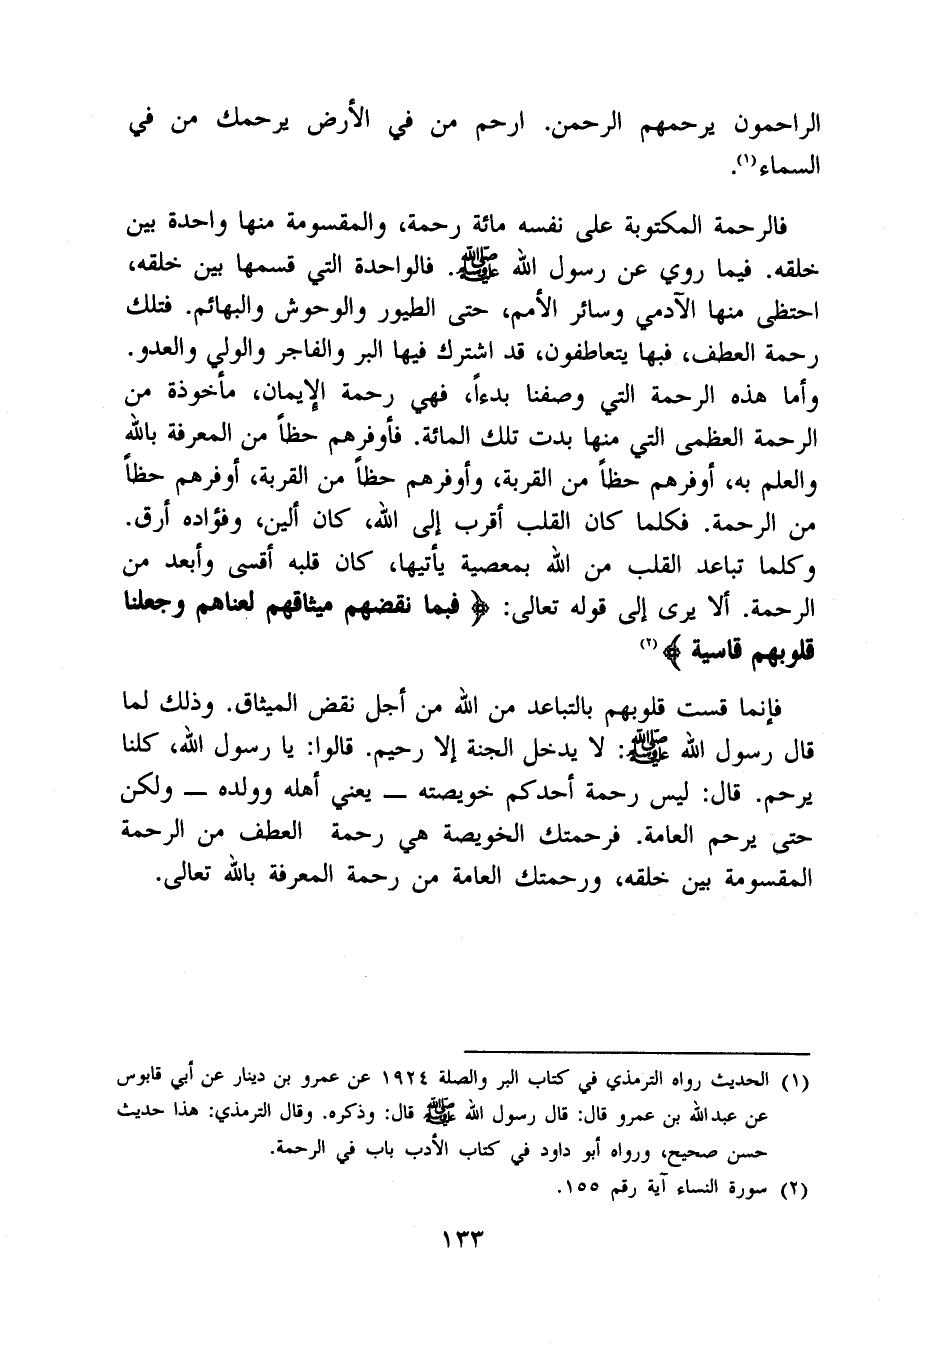 الراحمون يرحمهم الرحمن. ارحم من في الأرض يرحمك من في
السماء(١).
فالرحمة المكتوبة على نفسه مائة رحمة، والمقسومة منها واحدة بين
خلقه. فيما روي عن رسول الله ﷺ. فالواحدة التي قسمها بين خلقه،
احتظى منها الآدمي وسائر الأمم، حتى الطيور والوحوش والبهائم. فتلك
رحمة العطف، فبها يتعاطفون، قد اشترك فيها البر والفاجر والولي والعدو.
وأما هذه الرحمة التي وصفنا بدءاً، فهي رحمة الإيمان، مأخوذة من
الرحمة العظمى التي منها بدت تلك المائة. فأوفرهم حظاً من المعرفة بالله
والعلم به، أوفرهم حظاً من القربة، وأوفرهم حظاً من القربة، أوفرهم حظاً
من الرحمة. فكلما كان القلب أقرب إلى الله، كان ألين، وفؤاده أرق.
وكلما تباعد القلب من الله بمعصية يأتيها، كان قلبه أقسى وأبعد من
الرحمة. ألا يرى إلى قوله تعالى: ﴿ فبما نقضهم ميثاقهم لعناهم وجعلنا
قلوبهم قاسية ﴾(٢)
فإنما قست قلوبهم بالتباعد من الله من أجل نقض الميثاق. وذلك لما
قال رسول الله ﷺ: لا يدخل الجنة إلا رحيم. قالوا: يا رسول الله، كلنا
يرحم. قال: ليس رحمة أحدكم خويصته ــ يعني أهله وولده ــ ولكن
حتى يرحم العامة. فرحمتك الخويصة هي رحمة العطف من الرحمة
المقسومة بين خلقه، ورحمتك العامة من رحمة المعرفة بالله تعالى.
(١) الحديث رواه الترمذي في كتاب البر والصلة ١٩٢٤ عن عمرو بن دينار عن أبي قابوس
عن عبدالله بن عمرو قال: قال رسول الله ﷺ قال: وذكره. وقال الترمذي: هذا حديث
حسن صحيح، ورواه أبو داود في كتاب الأدب باب في الرحمة.
(٢) سورة النساء آية رقم ١٥٥.
١٣٣